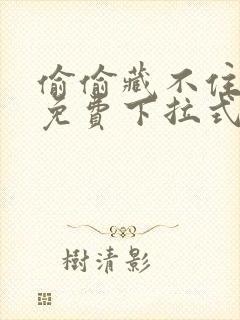 偷偷藏不住
免費下拉式
樹清影